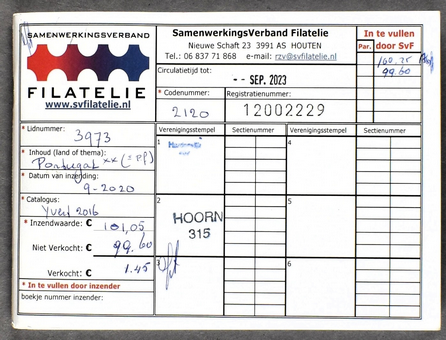 SAMENWERKINGSVERBAND
FILATELIE
www.svfilatelie.nl
SamenwerkingsVerband Filatelie
Nieuwe Schaft 23 3991 AS HOUTEN
Tel.: 06 837 71 868 e-mail: rzv@svfilatelie.nl
In te vullen
Par. door SvF
99.60
Circulatietijd tot:
-- SEP. 2023
* Codenummer: Registratienummer:
2120 12002229
* Lidnummer:
3973
* Inhoud (land of thema):
Portugal xx (= pf)
* Datum van inzending:
9-2020
* Catalogus:
Yvert 2016
* Inzendwaarde: € 101,05
Niet Verkocht: € 99.60
Verkocht: € 1.45
* In te vullen door inzender
boekje nummer inzender:
Verenigingsstempel Sectienummer Verenigingsstempel Sectienummer
1 4
2 5
HOORN
315
3 6